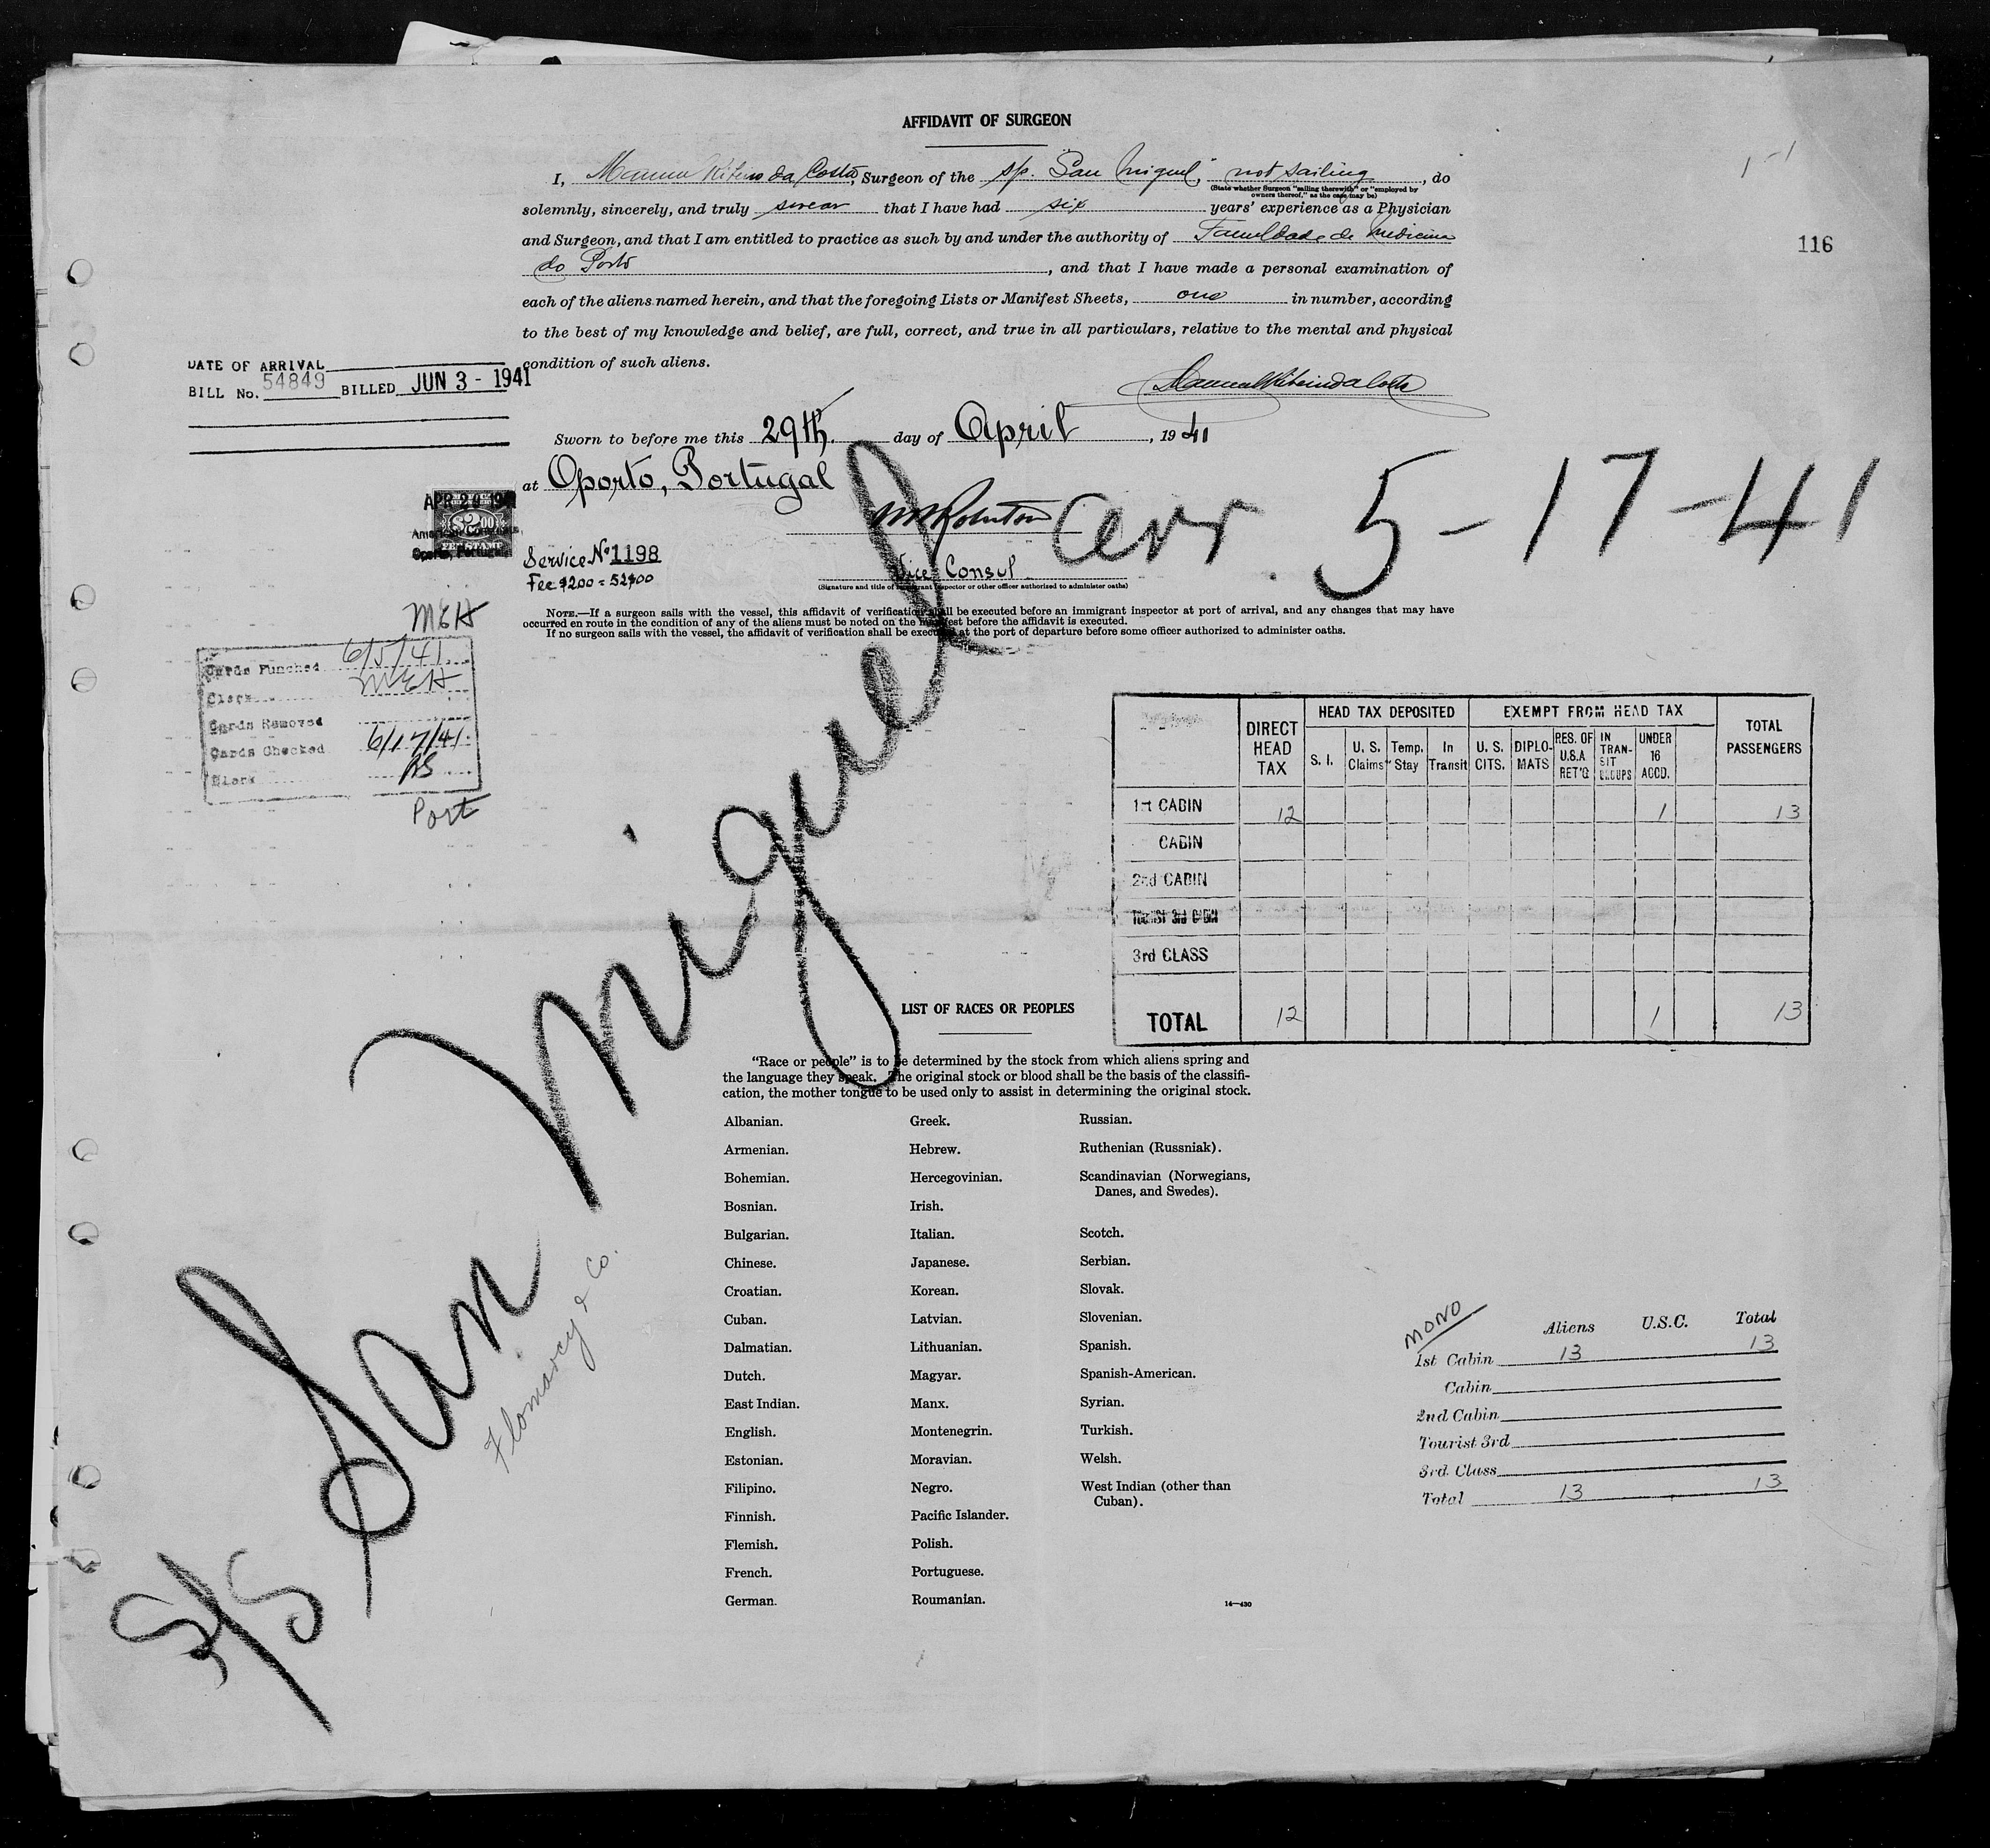 AFFIDAVIT OF SURGEON
I, Manuel Ribeiro da Costa, Surgeon of the s/p. "San Miguel," not sailing, do
(State whether Surgeon "sailing therewith" or "employed by owners thereof," as the case may be)
solemnly, sincerely, and truly swear that I have had six years' experience as a Physician
and Surgeon, and that I am entitled to practice as such by and under the authority of Faculdade de Medicina
do Porto, and that I have made a personal examination of
each of the aliens named herein, and that the foregoing Lists or Manifest Sheets, one in number, according
to the best of my knowledge and belief, are full, correct, and true in all particulars, relative to the mental and physical
condition of such aliens.
116
DATE OF ARRIVAL
BILL No. 54849 BILLED JUN 3 - 1941
Manuel Ribeiro da Costa
Sworn to before me this 29th. day of April, 1941
at Oporto, Portugal
$2.00
Oporto, Portugal
Arr. 5-17-41
Service No 1198
Vice Consul
(Signature and title of immigrant inspector or other officer authorized to administer oaths)
NOTE.—If a surgeon sails with the vessel, this affidavit of verification shall be executed before an immigrant inspector at port of arrival, and any changes that may have
occurred en route in the condition of any of the aliens must be noted on the manifest before the affidavit is executed.
If no surgeon sails with the vessel, the affidavit of verification shall be executed at the port of departure before some officer authorized to administer oaths.
MEH
Cards Punched 6/5/41.
Clerk MEH
Cards Removed
Cards Checked 6/17/41.
Clerk AS
Port
DIRECT HEAD TAX HEAD TAX DEPOSITED EXEMPT FROM HEAD TAX TOTAL PASSENGERS
S. I. U. S. Claims Temp. Stay In Transit U. S. CITS. DIPLOMATS RES. OF U.S.A RET'G IN TRANSIT GROUPS UNDER 16 ACCD.
1st CABIN 12 1 13
CABIN
2nd CABIN
TOURIST 3rd CABIN
3rd CLASS
TOTAL 12 1 13
S/S San Miguel
Flomarcy & Co.
LIST OF RACES OR PEOPLES
"Race or people" is to be determined by the stock from which aliens spring and
the language they speak. The original stock or blood shall be the basis of the classifi-
cation, the mother tongue to be used only to assist in determining the original stock.
Albanian. Greek. Russian.
Armenian. Hebrew. Ruthenian (Russniak).
Bohemian. Hercegovinian. Scandinavian (Norwegians,
Danes, and Swedes).
Bosnian. Irish.
Bulgarian. Italian. Scotch.
Chinese. Japanese. Serbian.
Croatian. Korean. Slovak.
Cuban. Latvian. Slovenian.
Dalmatian. Lithuanian. Spanish.
Dutch. Magyar. Spanish-American.
East Indian. Manx. Syrian.
English. Montenegrin. Turkish.
Estonian. Moravian. Welsh.
Filipino. Negro. West Indian (other than
Cuban).
Finnish. Pacific Islander.
Flemish. Polish.
French. Portuguese.
German. Roumanian.
14—430
MONO
Aliens U.S.C. Total
1st Cabin 13 13
Cabin
2nd Cabin
Tourist 3rd
3rd Class
Total 13 13